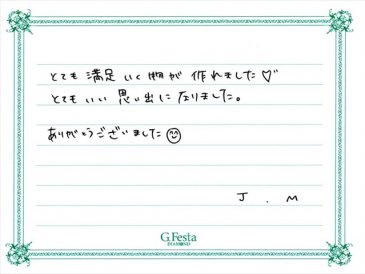 とても 満足 いく物が 作れました♡
とてもいい 思い出に なりました。
ありがとうございました☺
J . M
G.Festa
DIAMOND